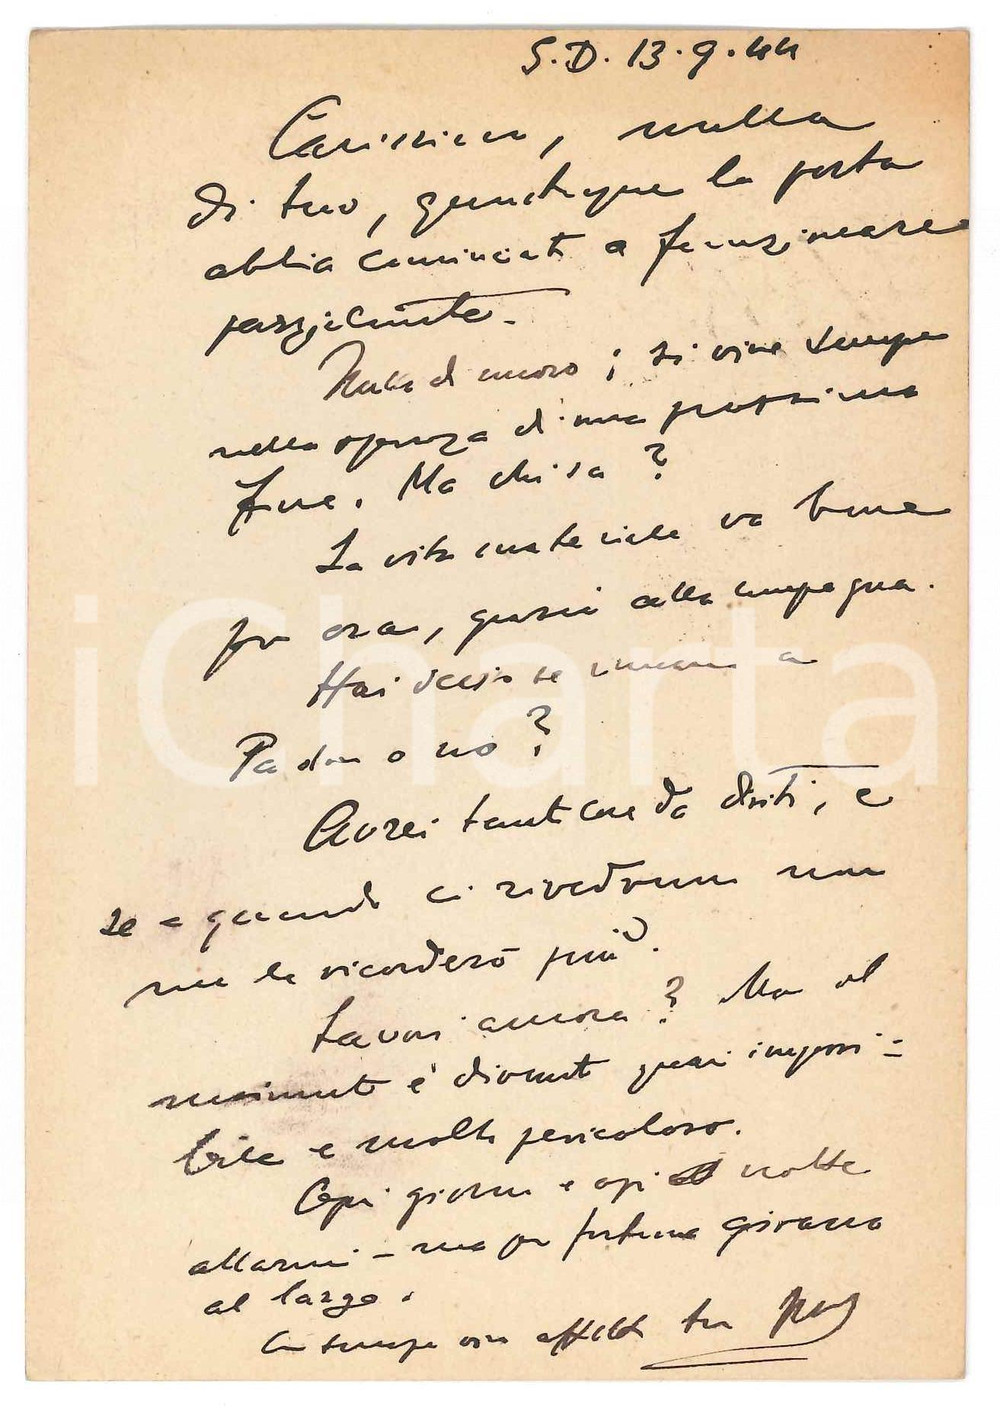 S.D. 13.9.44
Carissimo, nulla
di tuo, quantunque la posta
abbia cominciato a funzionare
parzialmente.
Nulla di nuovo; si vive sempre
nella speranza di una prossima
fine. Ma chi sa?
La vita materiale va bene
per ora, grazie alla campagna.
Hai deciso se rimanere a
Padova o no?
Avrei tante cose da dirti, e
se e quando ci rivedremo non
me le ricorderò più.
Lavori ancora? Ma al
è divenuto quasi impossi=
bile e molto pericoloso.
Ogni giorno e ogni notte
allarmi - ma per fortuna girano
al largo.
sempre affetto tuo
iCharta